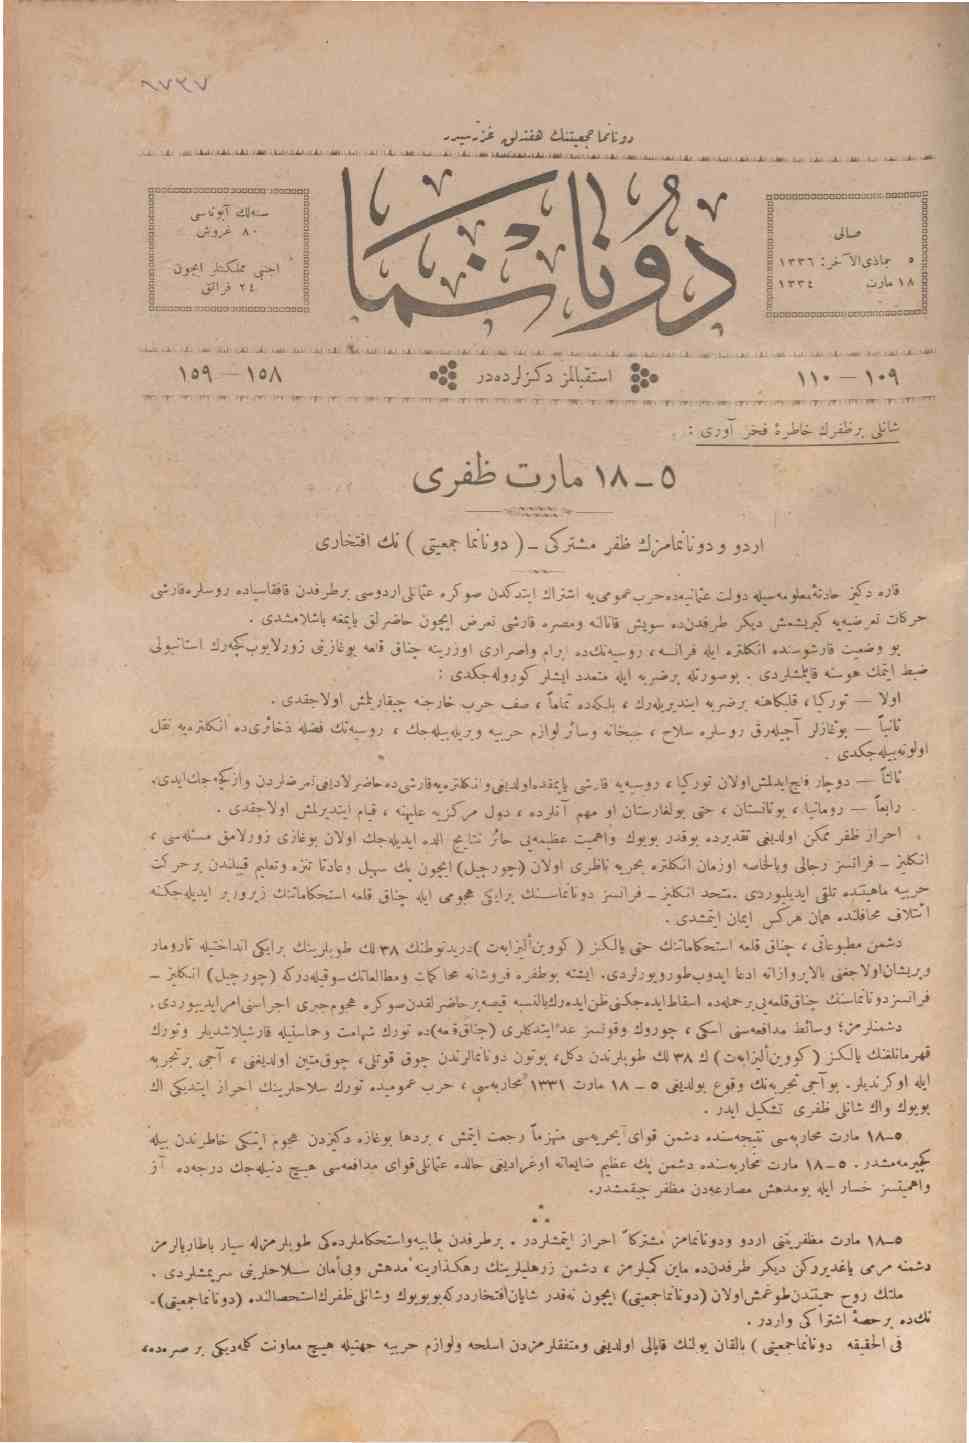 ٦٧٣٧
دونانما جمعيتنك هفته‌لق غزته‌سيدر
صالى
٥ جماذى الآخر : ١٣٣٦
١٨ مارت ١٣٣٤
دونانما
سنه‌لك آبونه‌سى
٨٠ غروش
اجنبى مملكتلر ايچون
٢٤ فرانق
١٠٩ — ١١٠
استقبالمز دكزلرده‌در
١٥٨ — ١٥٩
شانلى برظفرك خاطرهٔ فخر آورى :
٥ - ١٨ مارت ظفرى
اردو و دونانمامزك ظفر مشتركى - ( دونانما جمعيتى ) نك افتخارى
قاره دكيز حادثهٔ معلومه‌سيله دولت عثمانيه‌ده حرب عمومى‌يه اشتراك ايتدكدن صوكره عثمانلى اردوسى برطرفدن قافقاسياده روسلره قارشى
حركات تعرضيه‌يه كيريشمش ديكر طرفدن‌ده سويش قانالنه ومصره قارشى تعرض ايچون حاضرلق يايمغه باشلامشدى .
بو وضعيت قارشوسنده انكلتره ايله فرانسه ، روسيه‌نك‌ده ابرام واصرارى اوزرينه چناق قلعه بوغازينى زورلايوب كچه‌رك استانبولى
ضبط ايتمك هوسنه قاپلمشلردى . بوصورتله برضربه ايله متعدد ايشلر كوروله‌جكدى :
اولا — توركيا ، قلبكاهنه برضربه اينديريله‌رك ، بلكه‌ده تماماً ، صف حرب خارجنه چيقاريلمش اولاجقدى .
ثانياً — بوغازلر آچيله‌رق روسلره سلاح ، جبخانه وسائر لوازم حربيه ويريله‌بيله‌جك ، روسيه‌نك فضله ذخائرى‌ده انكلتره‌يه نقل
اولونه‌بيله‌جكدى .
ثالثاً — دوچار فلج ايدلمش اولان توركيا ، روسيه‌يه قارشى يايمقده اولديغى وانكلتره‌يه قارشى‌ده حاضرلاديغى تعرضلردن وازكچه‌جك ايدى .
رابعاً — رومانيا ، يونانستان ، حتى بولغارستان او مهم آنلرده ، دول مركزيه عليهنه ، قيام ايتديرلمش اولاجقدى .
احراز ظفر ممكن اولديغى تقديرده بوقدر بويوك واهميت عظيمه‌يى حائز نتايج الده ايديله‌جك اولان بوغازى زورلامق مسئله‌سى ،
انكليز - فرانسز رجالى وبالخاصه اوزمان انكلتره بحريه ناظرى اولان (چورچيل) ايچون پك سهل وعادتا تنزه وتعليم قبيلندن برحركت
حربيه ماهيتنده تلقى ايديليوردى . متحد انكليز - فرانسز دونانماسنك برايكى هجومى ايله چناق قلعه استحكاماتنك زيروزبر ايديله‌جكنه
ائتلاف محافلنده همان هركس ايمان ايتمشدى .
دشمن مطبوعاتى ، چناق قلعه استحكاماتنك حتى يالكز ( كووين‌أليزابت ) دريدنوطنك ٣٨ لك طوپلرينك برايكى انداختيله تارومار
وپريشان اولاجغنى بالاپروازانه ادعا ايدوب طورويورلردى. ايشته بوطفره فروشانه محاكمات ومطالعاتك سوقيله‌دركه (چورچيل) انكليز -
فرانسز دونانماسنك چناق‌قلعه‌يى برحمله‌ده اسقاط ايده‌جكنى ظن ايده‌رك بالنسبه قيصه برحاضرلقدن صوكره هجوم جبرى اجراسنى امر ايديوردى .
دشمنلرمز ؛ وسائط مدافعه‌سنى اسكى ، چوروك وقوتسز عد ايتدكلرى (چناق‌قلعه)ده تورك شهامت وحماستيله قارشيلاشديلر وتورك
قهرمانلغنك يالكز (كووين‌أليزابت) ك ٣٨ لك طوپلرندن دكل ، بوتون دونانمالرندن چوق قوتلى ، چوق متين اولديغنى ، آجى برتجربه
ايله اوكرنديلر . بوآجى تجربه‌نك وقوع بولديغى ٥ - ١٨ مارت ١٣٣١ محاربه‌سى ، حرب عموميده تورك سلاحلرينك احراز ايتديكى اك
بويوك واك شانلى ظفرى تشكيل ايدر .
٥-١٨ مارت محاربه‌سى نتيجه‌سنده دشمن قواى بحريه‌سى منهزماً رجعت ايتمش ، بردها بوغازه دكزدن هجوم ايتمكى خاطرندن بيله
كچيرمه‌مشدر . ٥-١٨ مارت محاربه‌سنده دشمن پك عظيم ضايعاته اوغراديغى حالده عثمانلى قواى مدافعه‌سى هيچ دنيله‌جك درجه‌ده آز
واهميتسز خسار ايله بومدهش مصارعه‌دن مظفر چيقمشدر.
٥-١٨ مارت مظفريتنى اردو ودونانمامز مشتركاً احراز ايتمشلردر . برطرفدن طابيه واستحكاملرده‌كى طوپلرمزله سيار باطاريالرمز
دشمنه مرمى ياغديرركن ديكر طرفدن‌ده ماين كميلرمز ، دشمن زرهليلرينك رهكذارينه مدهش وبى‌امان سلاحلرينى سريمشلردى .
ملتك روح حميتندن طوغمش اولان (دونانما جمعيتى) ايچون نه‌قدر شايان افتخاردركه بوبويوك وشانلى ظفرك استحصالنده (دونانما جمعيتى)-
نك‌ده برحصهٔ اشتراكى واردر .
فى الحقيقه دونانما جمعيتى ) بالقان يولنك قاپالى اولديغى ومتفقلرمزدن اسلحه ولوازم حربيه جهتيله هيچ معاونت كلمه‌ديكى بر صره‌ده ،